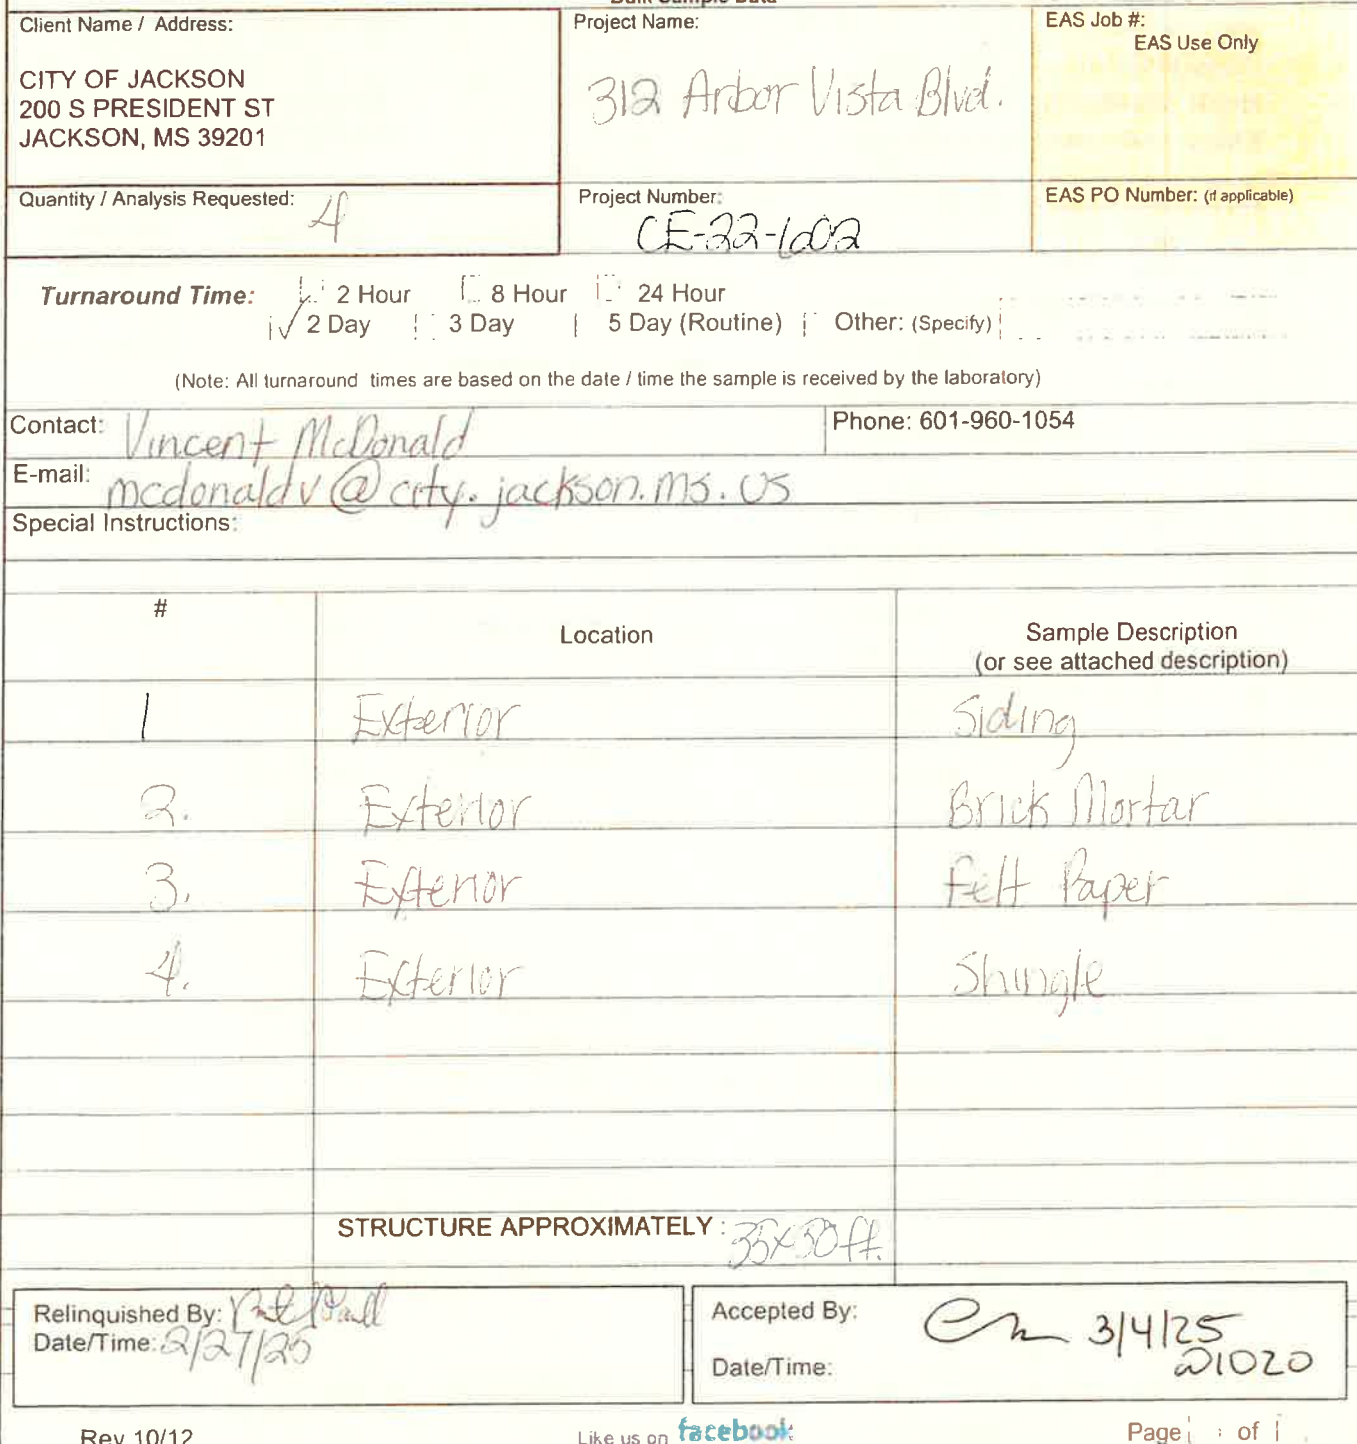 Bulk Sample Data
Client Name / Address:
CITY OF JACKSON
200 S PRESIDENT ST
JACKSON, MS 39201
Project Name:
312 Arbor Vista Blvd.
EAS Job #:
EAS Use Only
Quantity / Analysis Requested: 4
Project Number:
CE-22-1602
EAS PO Number: (if applicable)
Turnaround Time: 2 Hour 8 Hour 24 Hour
✓ 2 Day 3 Day 5 Day (Routine) Other: (Specify)
(Note: All turnaround times are based on the date / time the sample is received by the laboratory)
Contact: Vincent McDonald
Phone: 601-960-1054
E-mail: mcdonaldv@city.jackson.ms.us
Special Instructions:
# Location Sample Description
(or see attached description)
1 Exterior Siding
2. Exterior Brick Mortar
3. Exterior Felt Paper
4. Exterior Shingle
STRUCTURE APPROXIMATELY : 35x50 ft.
Relinquished By:
Date/Time: 2/27/25
Accepted By: 3/4/25
Date/Time: @1020
Rev 10/12
Like us on facebook
Page of